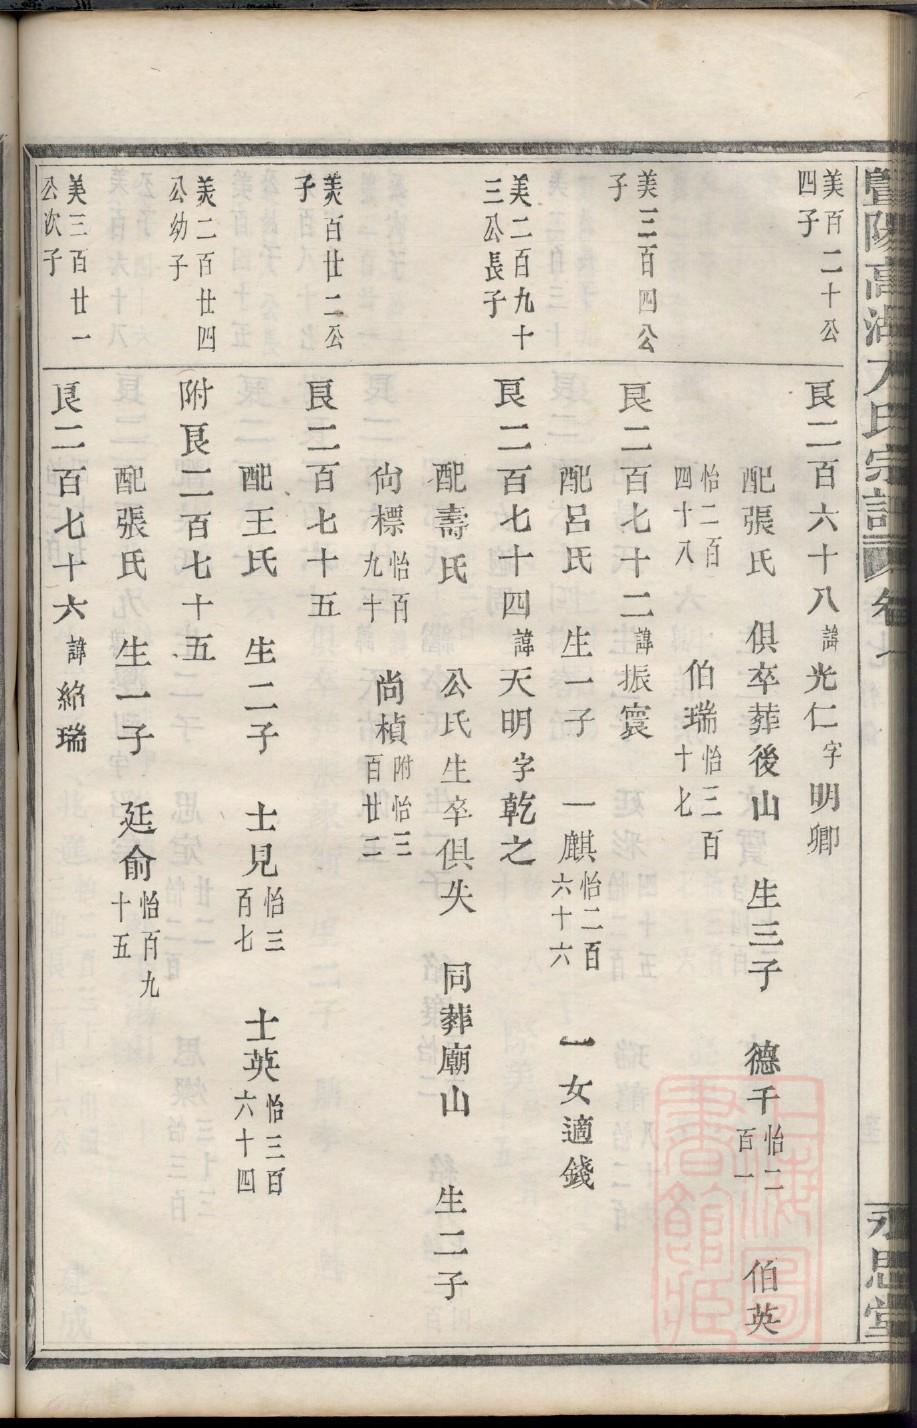 美百二十公
四子
艮二百六十八諱光仁字明卿
配張氏 俱卒葬後山 生三子 德千怡二百一 伯英
怡二百四十八 伯瑞怡三百十七
美三百四公
子
艮二百七十二諱振寰
配呂氏 生一子 一麒怡二百六十六 一女適錢
美二百九十
三公長子
艮二百七十四諱天明字乾之
配壽氏 公氏生卒俱失 同葬廟山 生二子
尙標怡百九十 尚楨附怡三百廿二
美百廿二公
子
艮二百七十五
配王氏 生二子 士見怡三百七 士英怡三百六十四
美二百廿四
公幼子
附艮二百七十五
配張氏 生一子 廷俞怡百九十五
美三百廿一
公次子
艮二百七十六諱紹瑞
永思堂